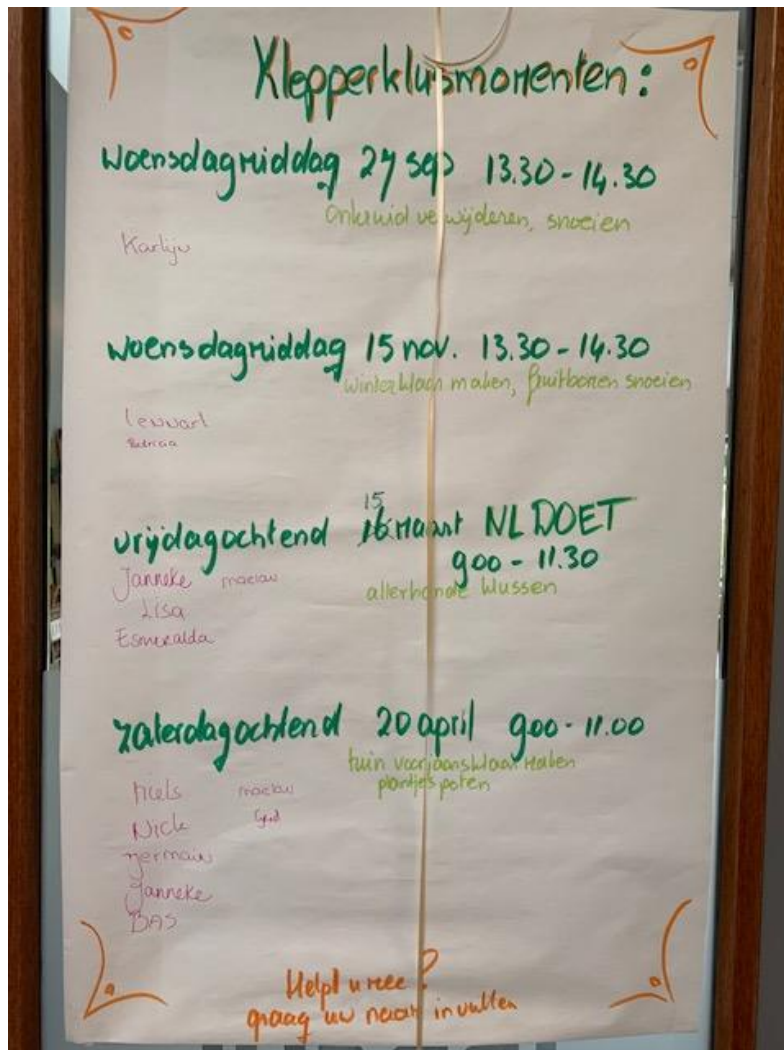 Klepperklusmomenten:
woensdagmiddag 27 sep 13.30 - 14.30
onkruid verwijderen, snoeien
Karlijn
woensdagmiddag 15 nov. 13.30 - 14.30
winterklaar maken, fruitbomen snoeien
Lennart
Patricia
15
vrijdagochtend 16 maart NL DOET
900 - 11.30
Janneke
allerhande klussen
Lisa
Esmeralda
zaterdagochtend 20 april 900 - 11.00
tuin voorjaarsklaar maken
plantjes poten
Niels
Nick
Jermain
Janneke
BAS
Helpt u mee?
graag uw naam invullen